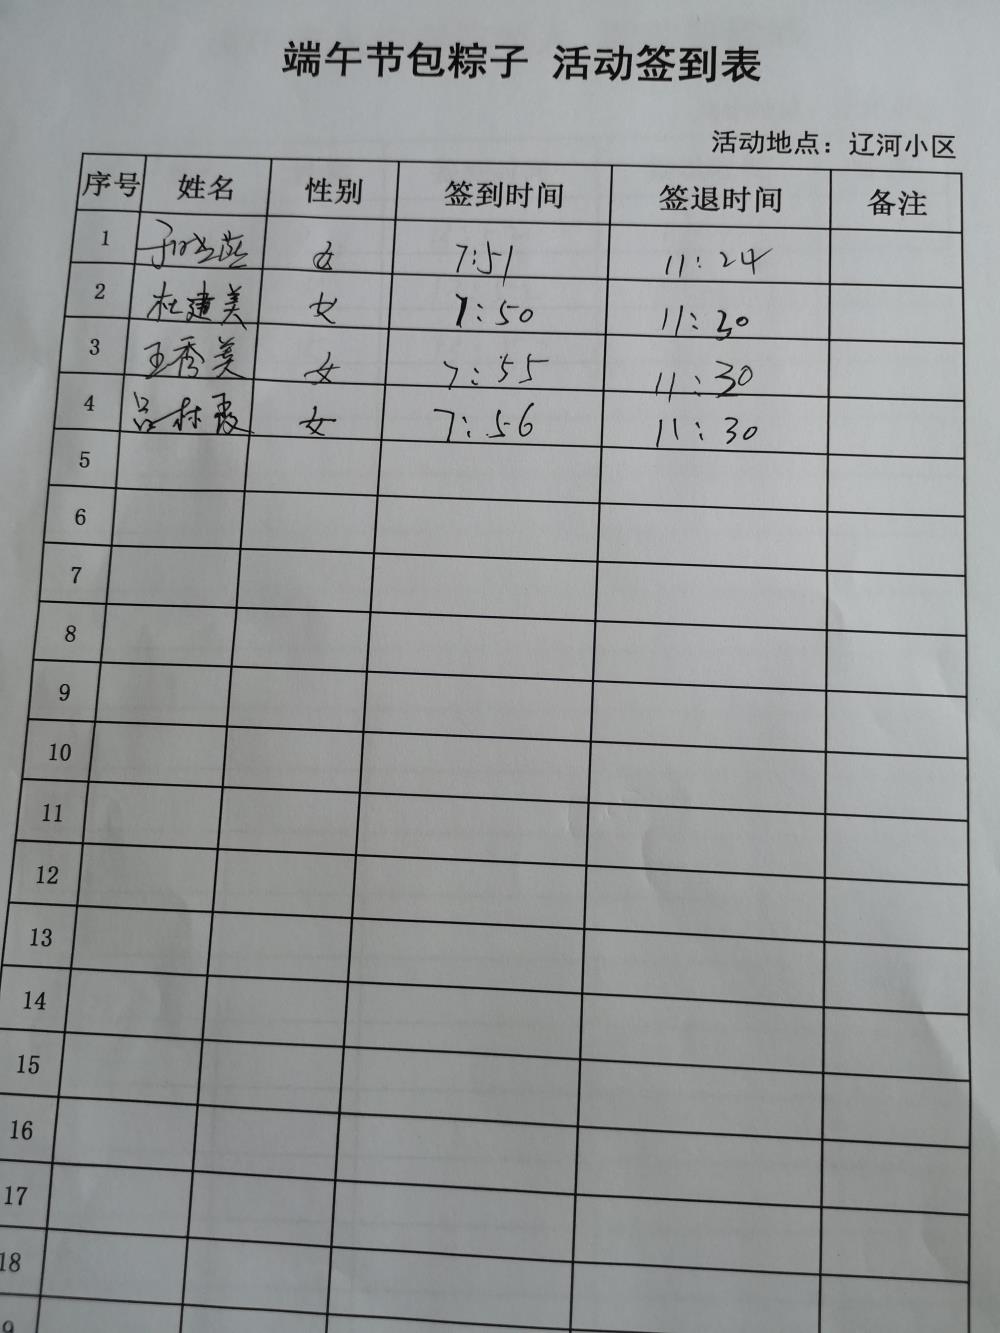 端午节包粽子 活动签到表
活动地点：辽河小区
序号 姓名 性别 签到时间 签退时间 备注
1 女 7:51 11:24
2 杜建美 女 7:50 11:30
3 王秀美 女 7:55 11:30
4 女 7:56 11:30
5
6
7
8
9
10
11
12
13
14
15
16
17
18